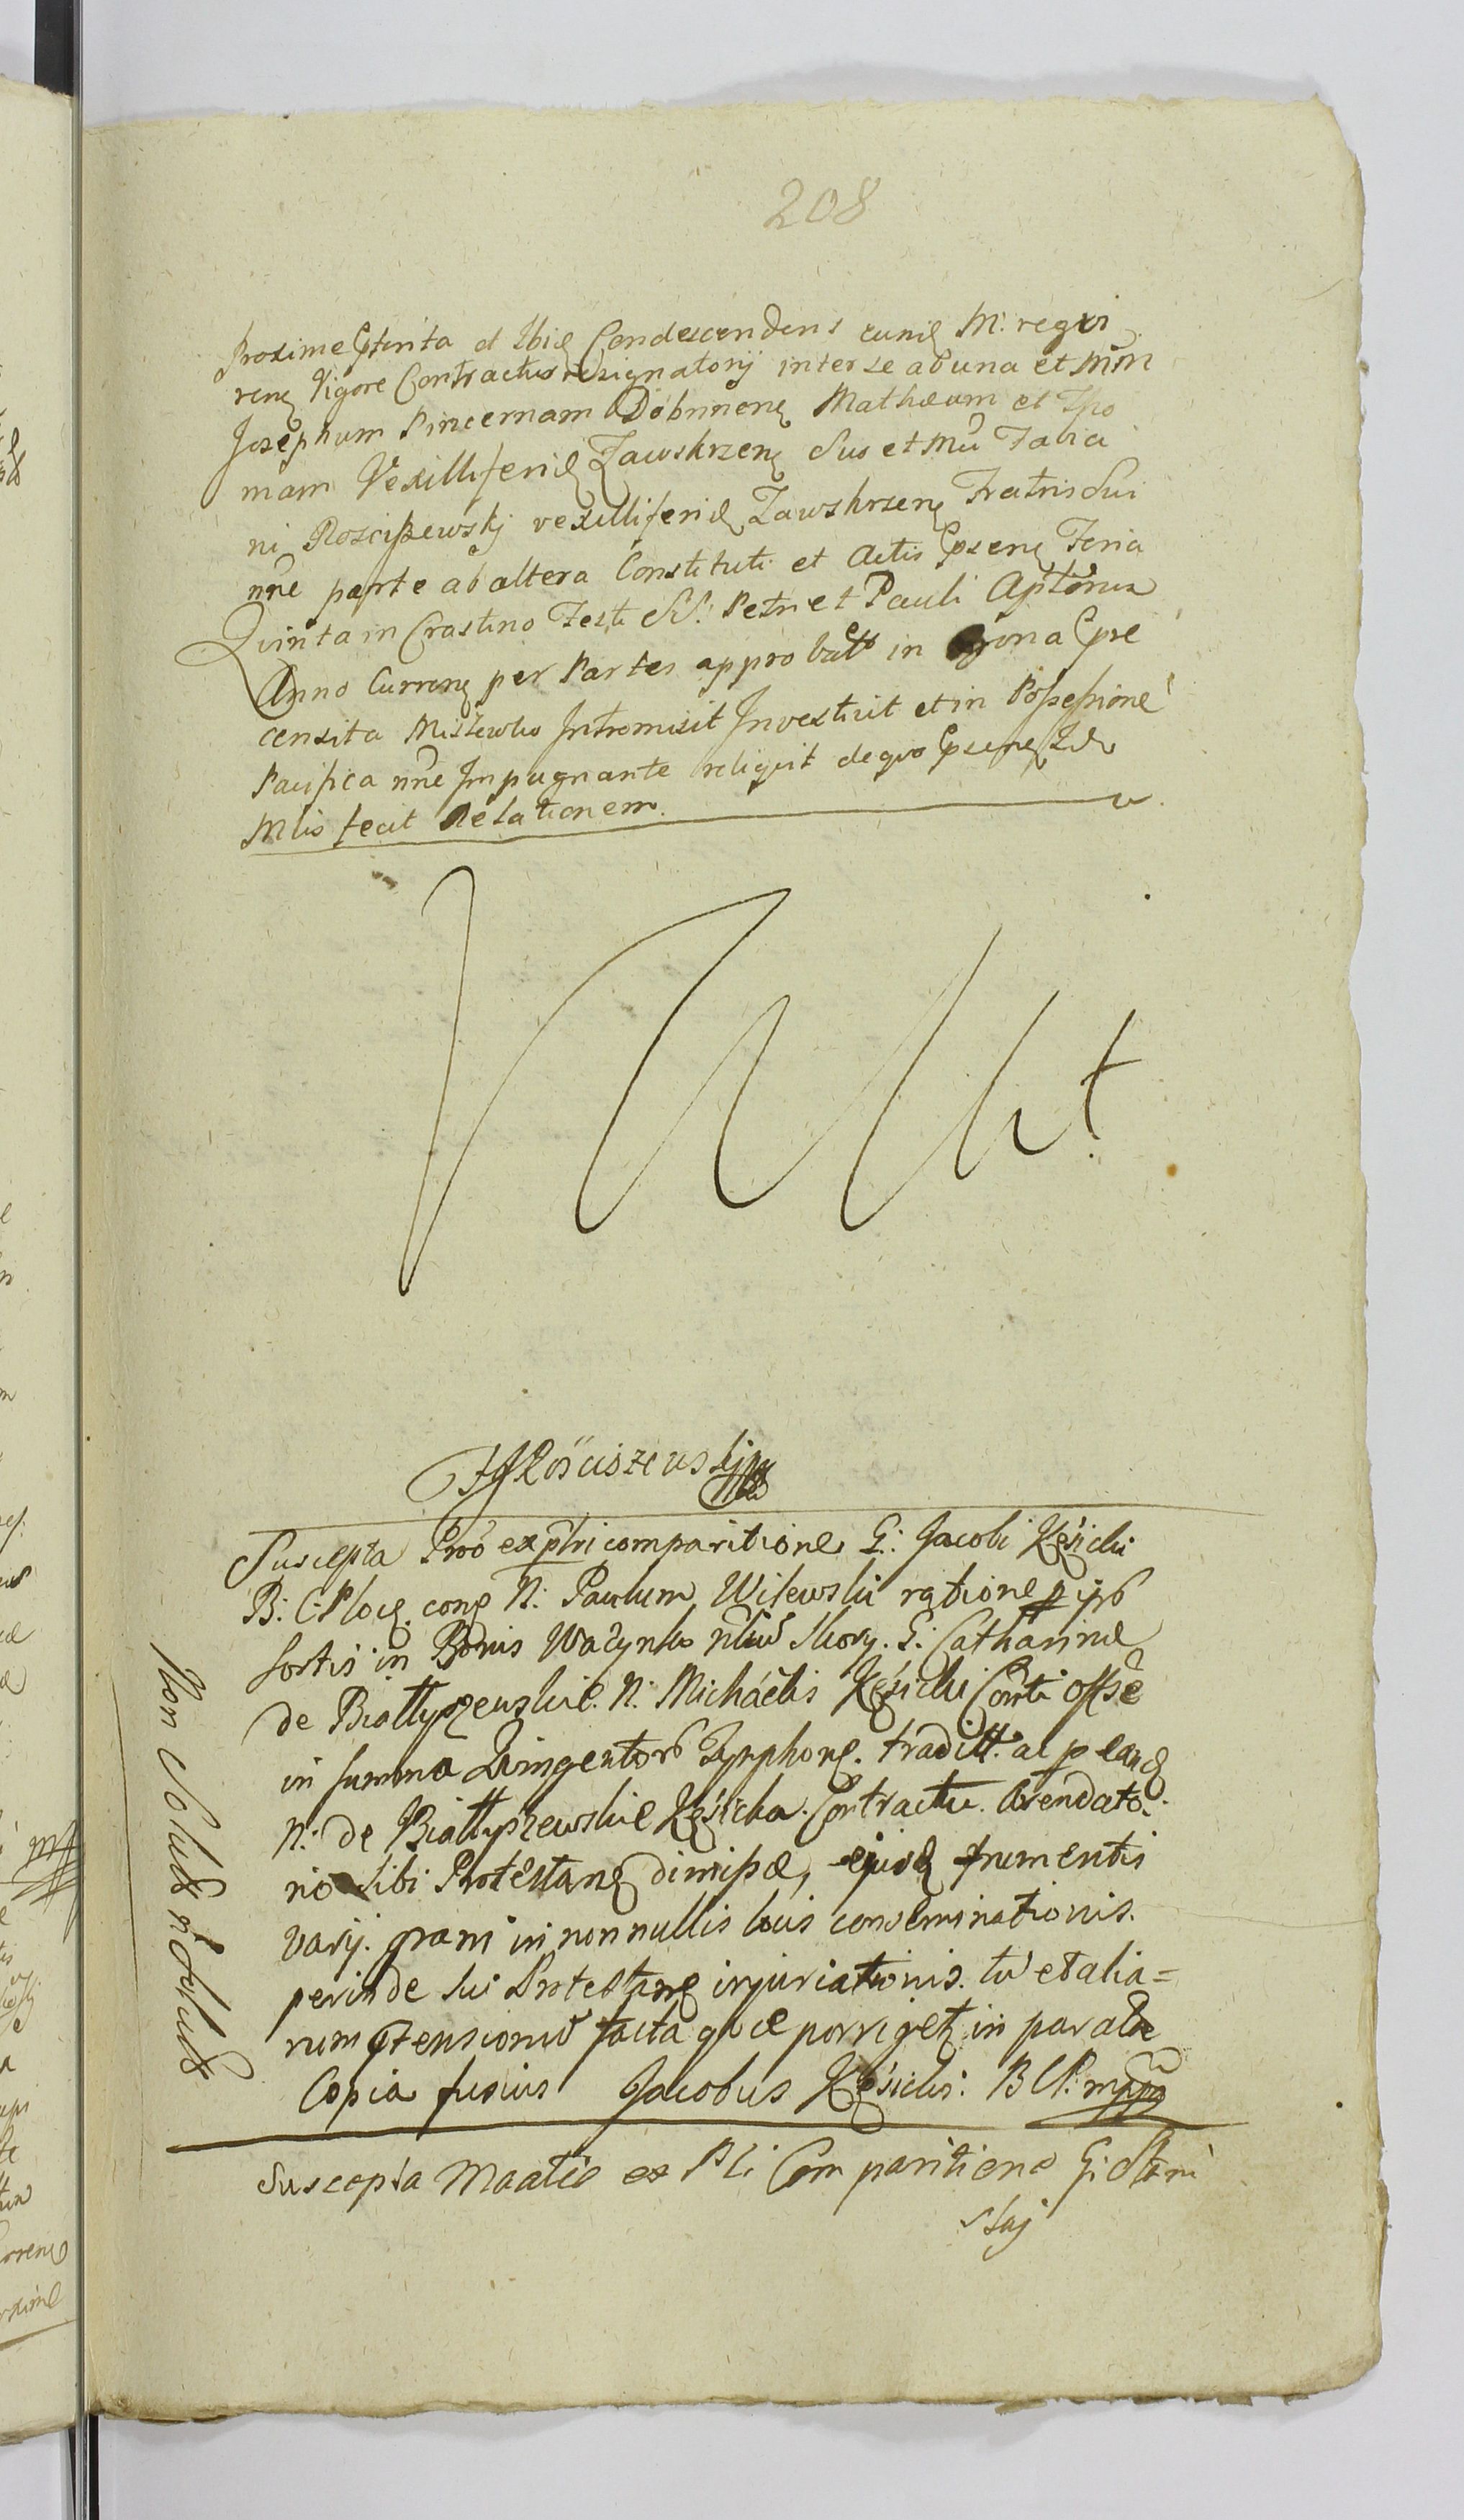 208
proxime Ptinta et Ibid Condescendens eund M: requi
renē Vigore Contractus resignatorij inter se ab una et Mm
Josephum Pincernam Dobrinenē Mathæum et Tho
mam Vexilliferid Zawskrzenē Suo et M Fabia
ni Rosciszewskj vexilliferid Zawskrzenē Fratris Sui
nne parte ab altera Constituti et Actis Psenē Feria
Quinta in Crastino Festi SS: Petri et Pauli Aptorum
Anno Currenē per Partes approbati in Bona Pre
censita Miszewko Intromisit Investivit et in Possessione
Pacifica nne Impugnante reliquit de quo Psenē
Mlis fecit Relationem.
JRościszewskj mp
Suscepta Prō ex pltri comparitione G: Jacobi Kęsicki
B: C: Ploc conē N: Paulum Witewski ratione
Sortis in Bonis Wazynko G: Catharinæ
de Biallyszewskie N: Michaëlis Kęsicki Conti
in summa Quingentorū Tynphonē. tradit. ac p eand
N: de Biallyszewskie Kęsicka. Contractu Arendato
rio sibi Protestanē dimissæ, ejusd frumentis
varij. grani in nonnullis locis conseminationis.
perinde sui Protestanē injuriationis. tū et alia=
rum Ptensionū facta quæ porriget in parata
Copia fusius Jacobus Kęsicki: B C P: mpp
Non Solut
Suscepta Ma ex Pti Comparitione G: Stani
slaj